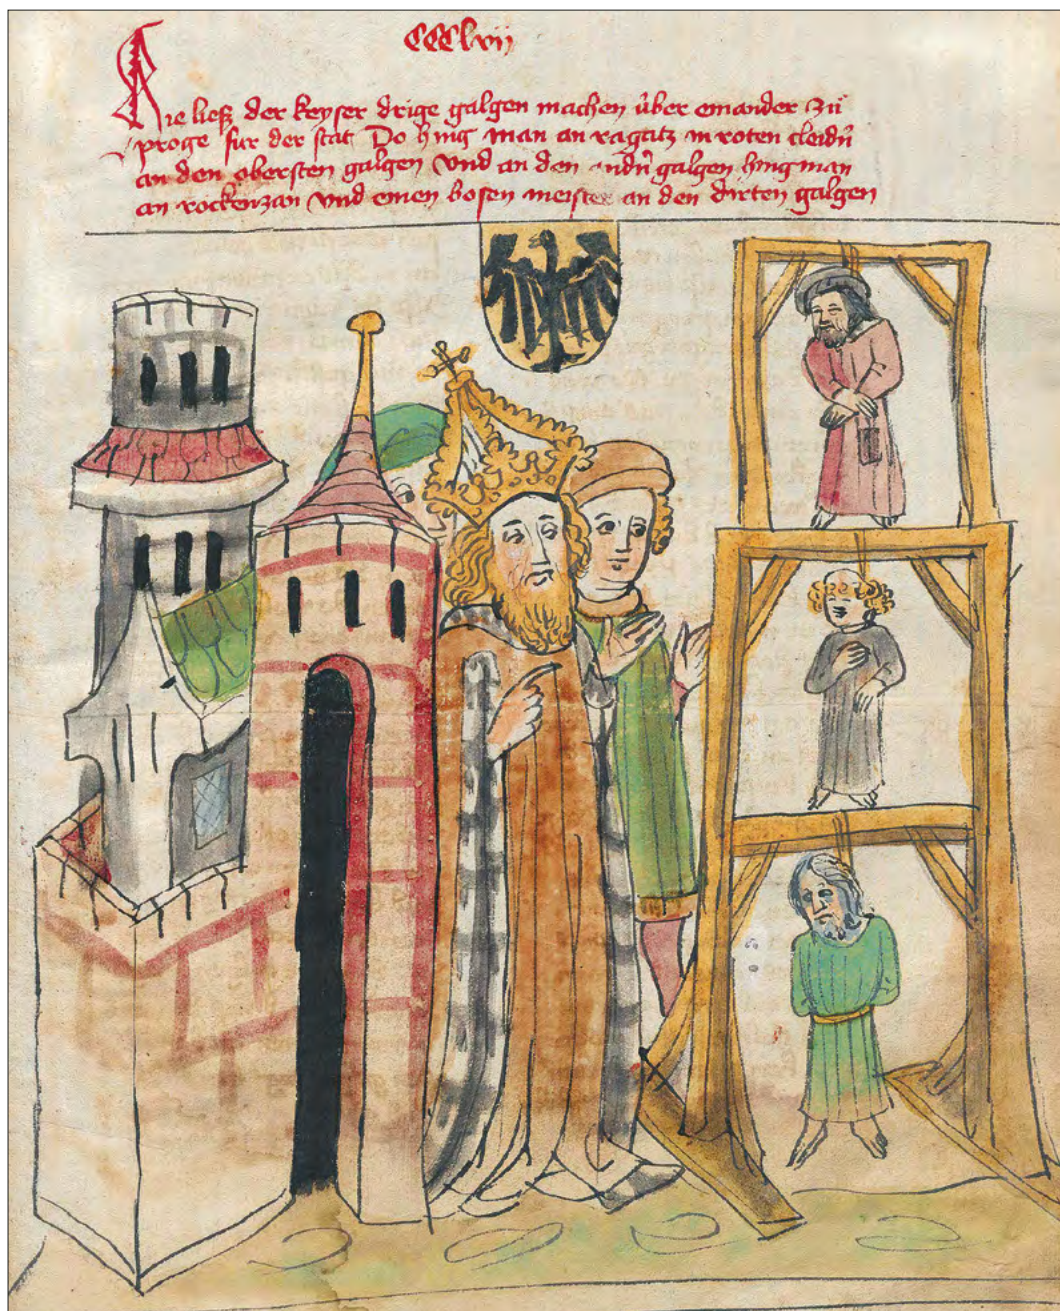 CCClvij
Hie ließ der keyser drige galgen machen über einander zü
proge für der stat Do hing man an ragatz in roten cleidn̄
an den obersten galgen Vnd an den andn̄ galgen hing man
an rockenzan Vnd einen bosen meister an den dirten galgen